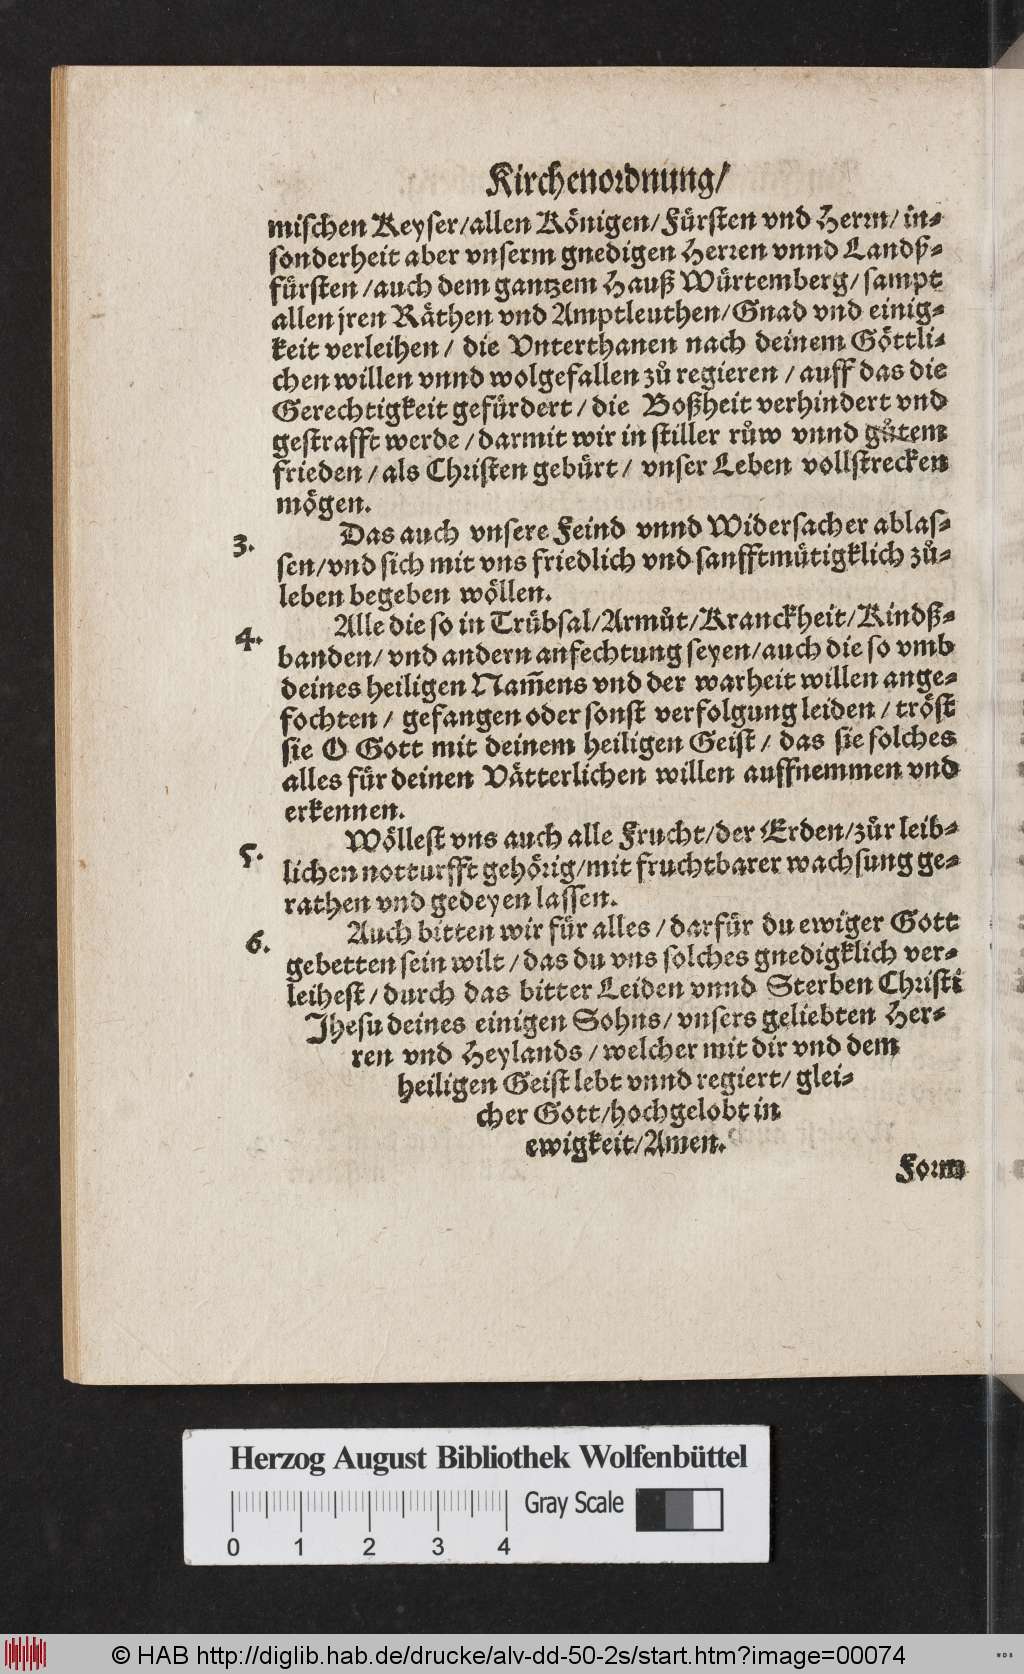 Kirchenordnung/
mischen Keyser/allen Königen/Fürsten vnd Herrn/ in⸗
sonderheit aber vnserm gnedigen Herren vnnd Landß⸗
fürsten/auch dem gantzem Hauß Würtemberg/ sampt
allen jren Räthen vnd Amptleuthen/Gnad vnd einig⸗
keit verleihen/ die Vnterthanen nach deinem Göttli⸗
chen willen vnnd wolgefallen zů regieren / auff das die
Gerechtigkeit gefürdert / die Boßheit verhindert vnd
gestrafft werde / darmit wir in stiller růw vnnd gůtem
frieden / als Christen gebürt / vnser Leben vollstrecken
mögen.
3. Das auch vnsere Feind vnnd Widersacher ablas⸗
sen/vnd sich mit vns friedlich vnd sanfftmütigklich zů⸗
leben begeben wöllen.
4. Alle die so in Trübsal/Armůt/Kranckheit/Kindß⸗
banden/ vnd andern anfechtung seyen/auch die so vmb
deines heiligen Nam̃ens vnd der warheit willen ange⸗
fochten / gefangen oder sonst verfolgung leiden / tröst
sie O Gott mit deinem heiligen Geist / das sie solches
alles für deinen Vätterlichen willen auffnemmen vnd
erkennen.
5. Wöllest vns auch alle Frucht/der Erden/zůr leib⸗
lichen notturfft gehörig/mit fruchtbarer wachsung ge⸗
rathen vnd gedeyen lassen.
6. Auch bitten wir für alles / darfür du ewiger Gott
gebetten sein wilt / das du vns solches gnedigklich ver⸗
leihest / durch das bitter Leiden vnnd Sterben Christi
Jhesu deines einigen Sohns/ vnsers geliebten Her⸗
ren vnd Heylands / welcher mit dir vnd dem
heiligen Geist lebt vnnd regiert/ glei⸗
cher Gott/hochgelobt in
ewigkeit/Amen.
Form
Herzog August Bibliothek Wolfenbüttel
Gray Scale
0 1 2 3 4
© HAB http://diglib.hab.de/drucke/alv-dd-50-2s/start.htm?image=00074